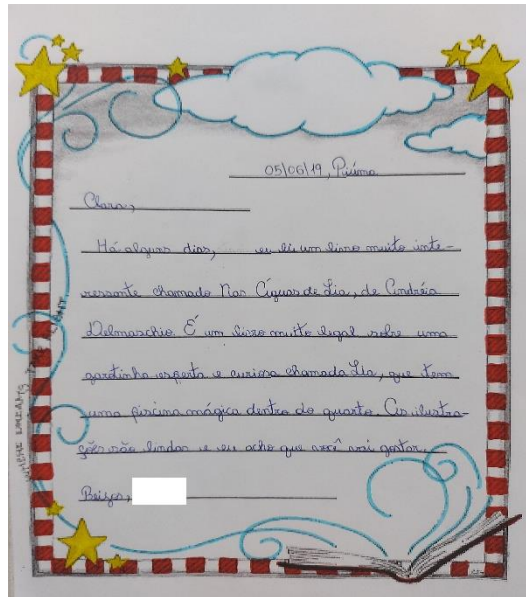 05/06/19, Piúma
Clara,
Há alguns dias, eu li um livro muito inte-
ressante chamado Nas Águas de Lia, de Andréia
Delmaschio. É um livro muito legal sobre uma
garotinha esperta e curiosa chamada Lia, que tem
uma piscina mágica dentro do quarto. As ilustra-
ções são lindas e eu acho que você vai gostar.
Beijos,